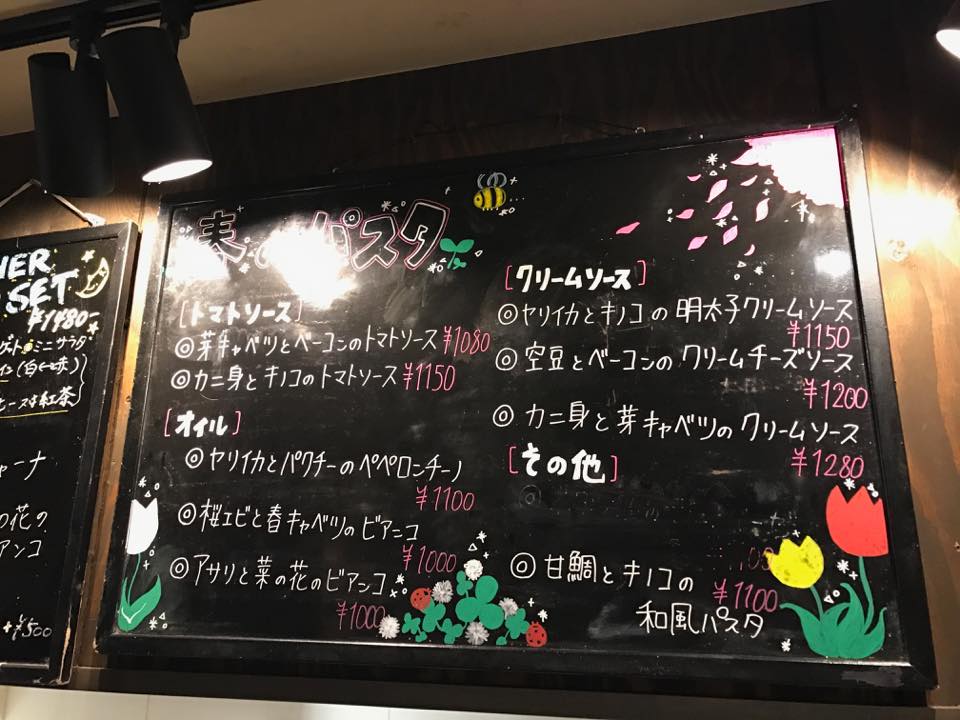 NER
SET
¥1480-
ミニサラダ
イン(白or赤)
紅茶
ャーナ
の花の
アンコ
+¥500
春のパスタ
[トマトソース]
◎芽キャベツとベーコンのトマトソース ¥1080
◎カニ身とキノコのトマトソース ¥1150
[オイル]
◎ヤリイカとパクチーのペペロンチーノ
¥1100
◎桜エビと春キャベツのビアンコ
¥1000
◎アサリと菜の花のビアンコ
¥1000
[クリームソース]
◎ヤリイカとキノコの明太子クリームソース
¥1150
◎空豆とベーコンのクリームチーズソース
¥1200
◎カニ身と芽キャベツのクリームソース
¥1280
[その他]
◎甘鯛とキノコの
¥1100
和風パスタ